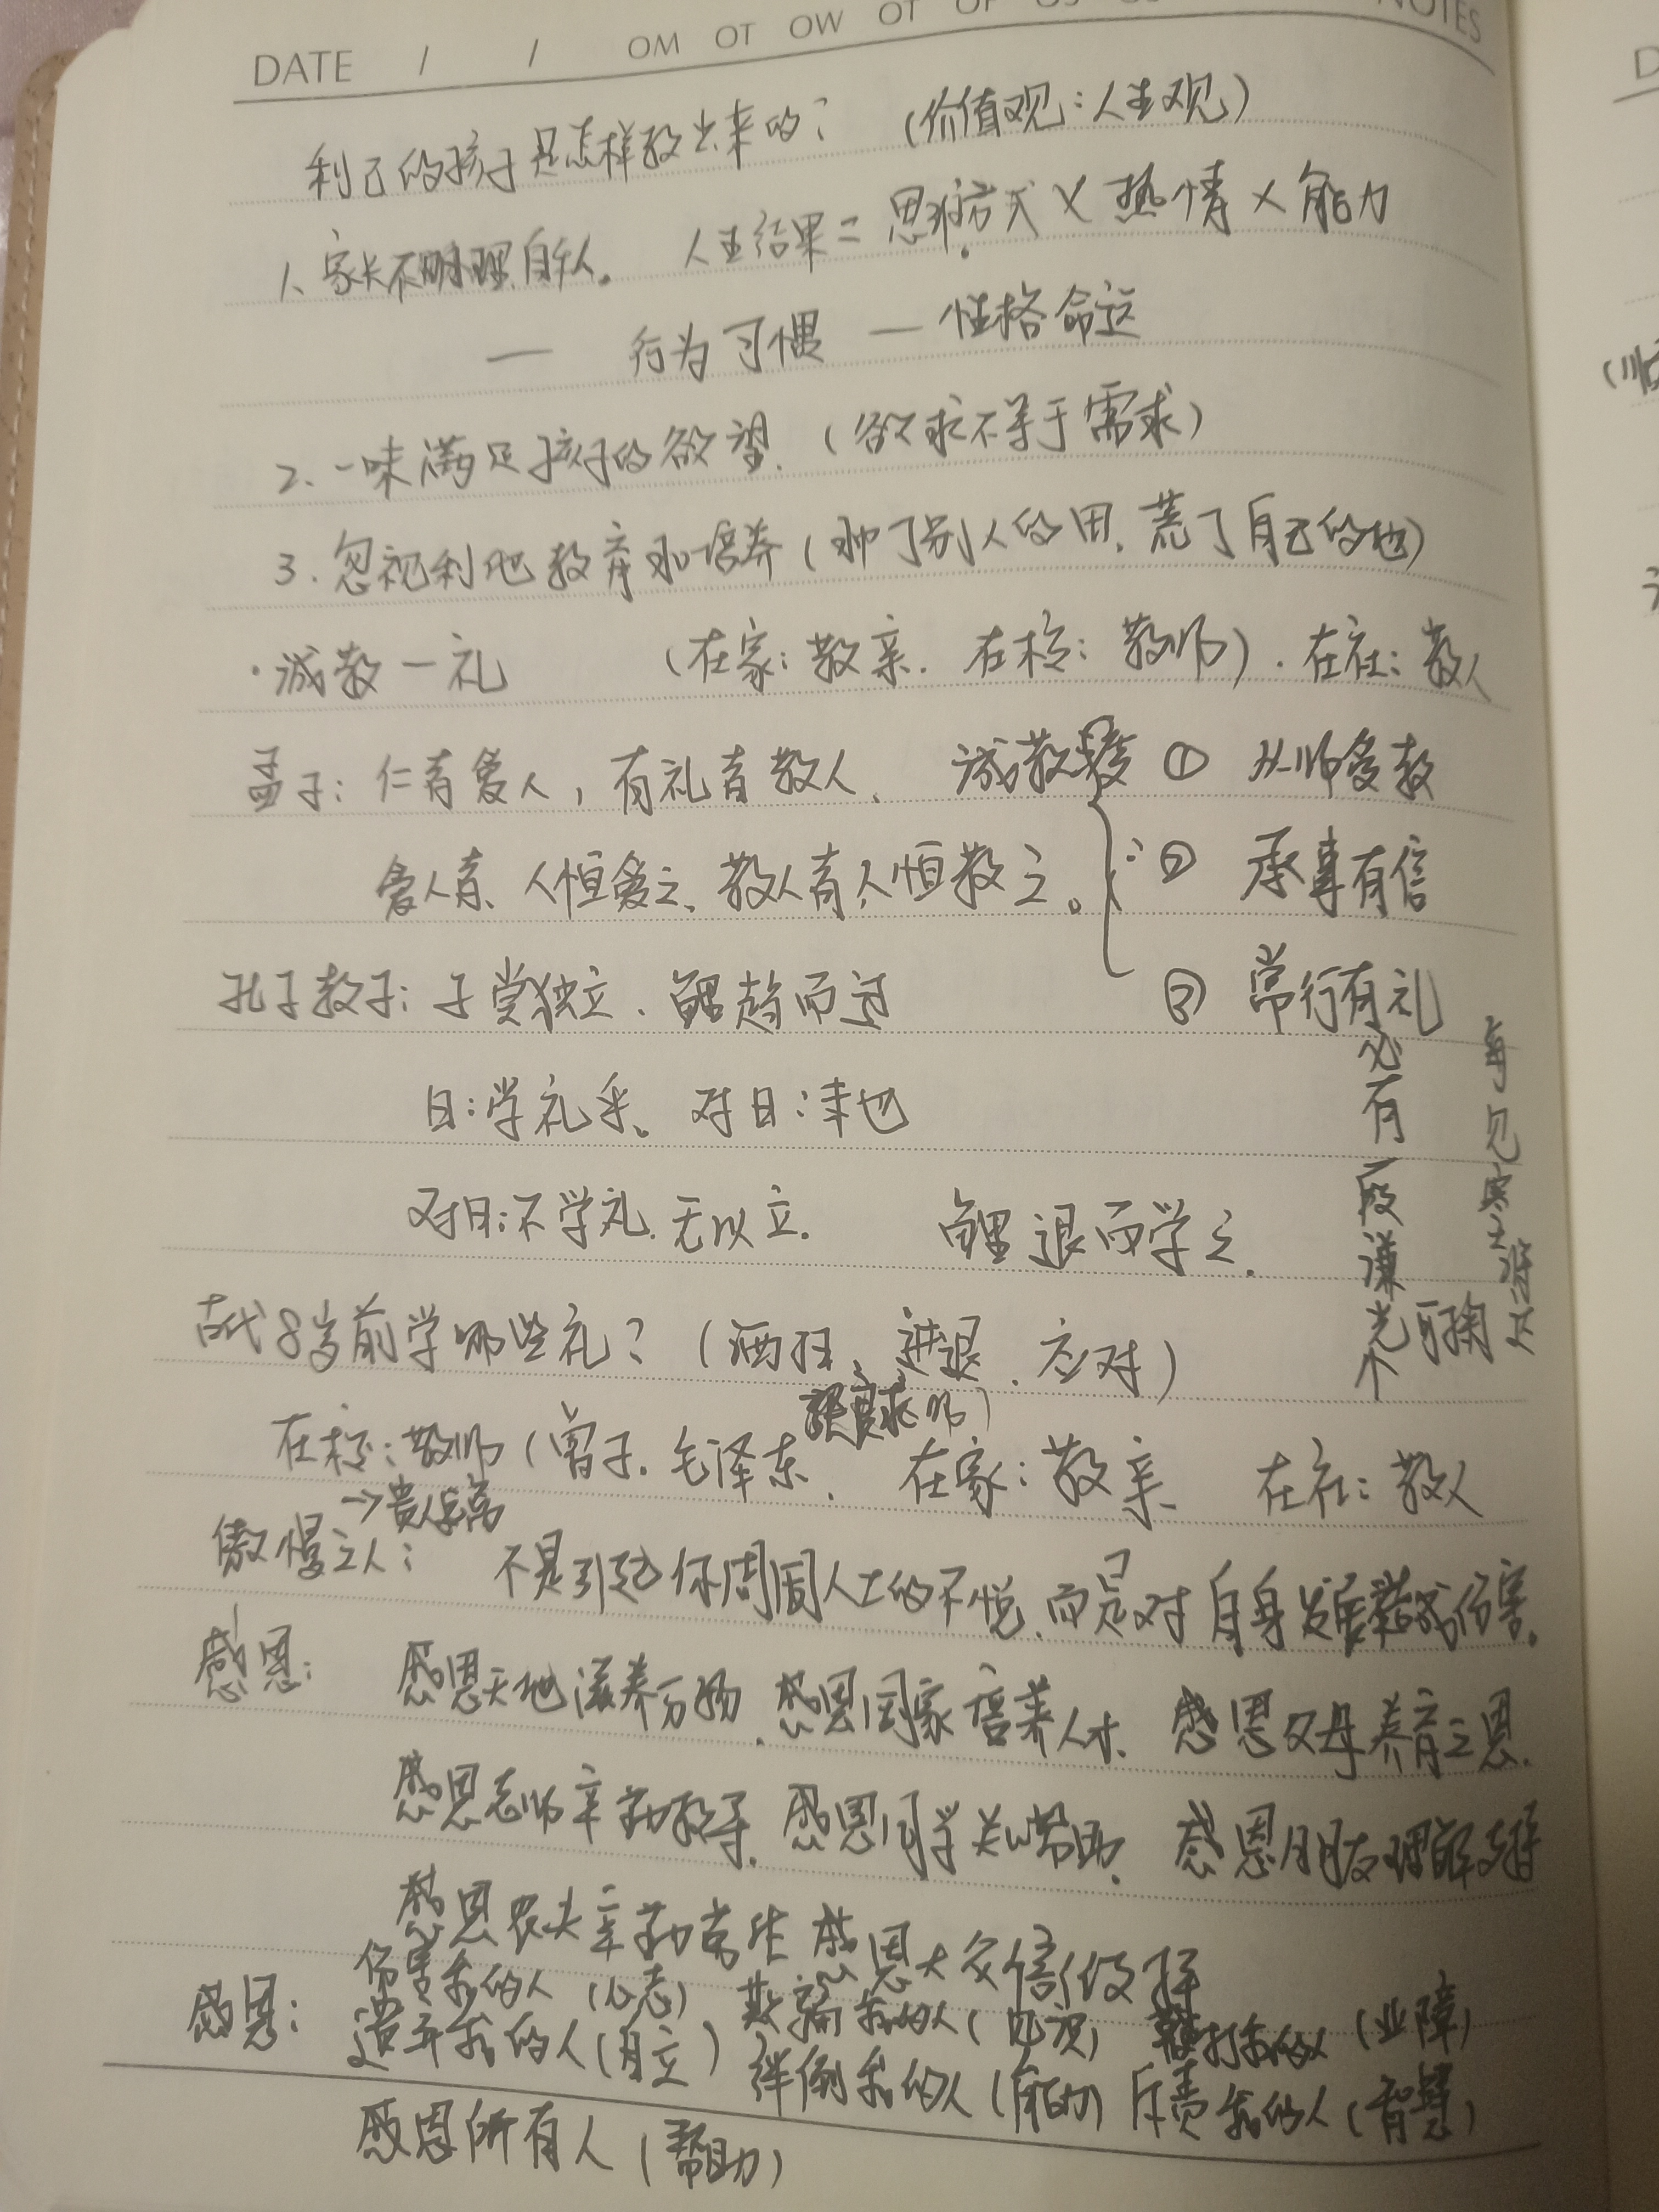 DATE / / OM OT OW OT OF NOTES
利己的孩子是怎样教出来的？ （价值观：人生观）
1、家长不明理自私。 人生结果＝思维方式×热情×能力
— 行为习惯 — 性格命运
2、一味满足孩子的欲望.（欲求不等于需求）
3.忽视利他教育和培养（种了别人的田.荒了自己的地）
·诚敬一礼 （在家：敬亲.在校：敬师）.在社：敬人
孟子：仁者爱人，有礼者敬人、 诚敬 ① 从师多教
爱人者、人恒爱之、敬人者人恒敬之。 ② 承事有信
孔子教子：子尝独立.鲤趋而过 ③ 常行有礼
曰：学礼乎、对曰：未也
对曰：不学礼.无以立. 鲤退而学之.
每见寒士将达
必有一段谦光可掬
古代8岁前学哪些礼？（洒扫、进退.应对）
在校：敬师（曾子.毛泽东. 求师） 在家：敬亲、 在社：敬人
→贡高
傲慢之人： 不是引起你周围人士的不悦.而是对自身发展造成伤害.
感恩： 感恩天地滋养万物.感恩国家培养人才.感恩父母养育之恩.
感恩老师辛勤教导.感恩同学关心帮助.感恩朋友理解支持
感恩农夫辛勤劳作 感恩大众信任支持
感恩： 伤害我的人（心志）欺骗我的人（见识）鞭打我的人（业障）
遗弃我的人（自立）绊倒我的人（能力）斥责我的人（智慧）
感恩所有人（帮助）